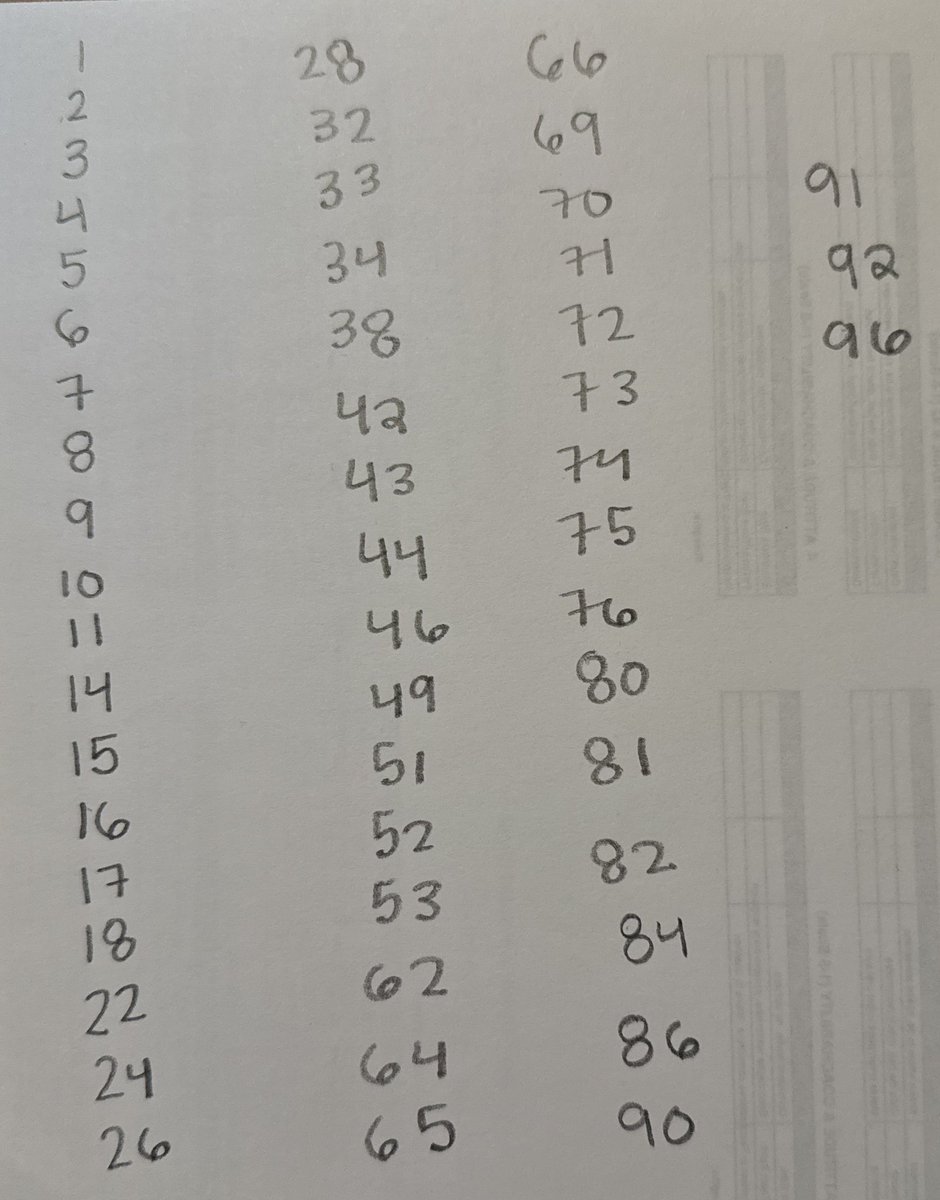 1
2
3
4
5
6
7
8
9
10
11
14
15
16
17
18
22
24
26
28
32
33
34
38
42
43
44
46
49
51
52
53
62
64
65
66
69
70
71
72
73
74
75
76
80
81
82
84
86
90
91
92
96